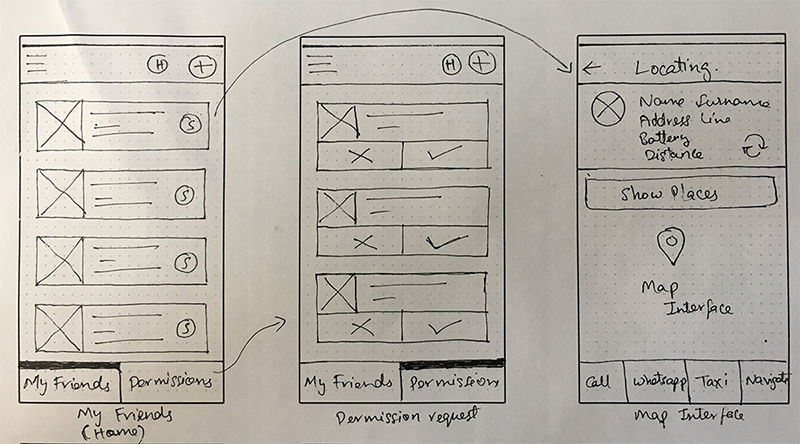 H +
S
S
S
S
My Friends Permissions
My Friends
(Home)
H +
My Friends Permission
Permission request
Locating.
Name Surname
Address Line
Battery
Distance
Show Places
Map
Interface
Call Whatsapp Taxi Navigate
Map Interface